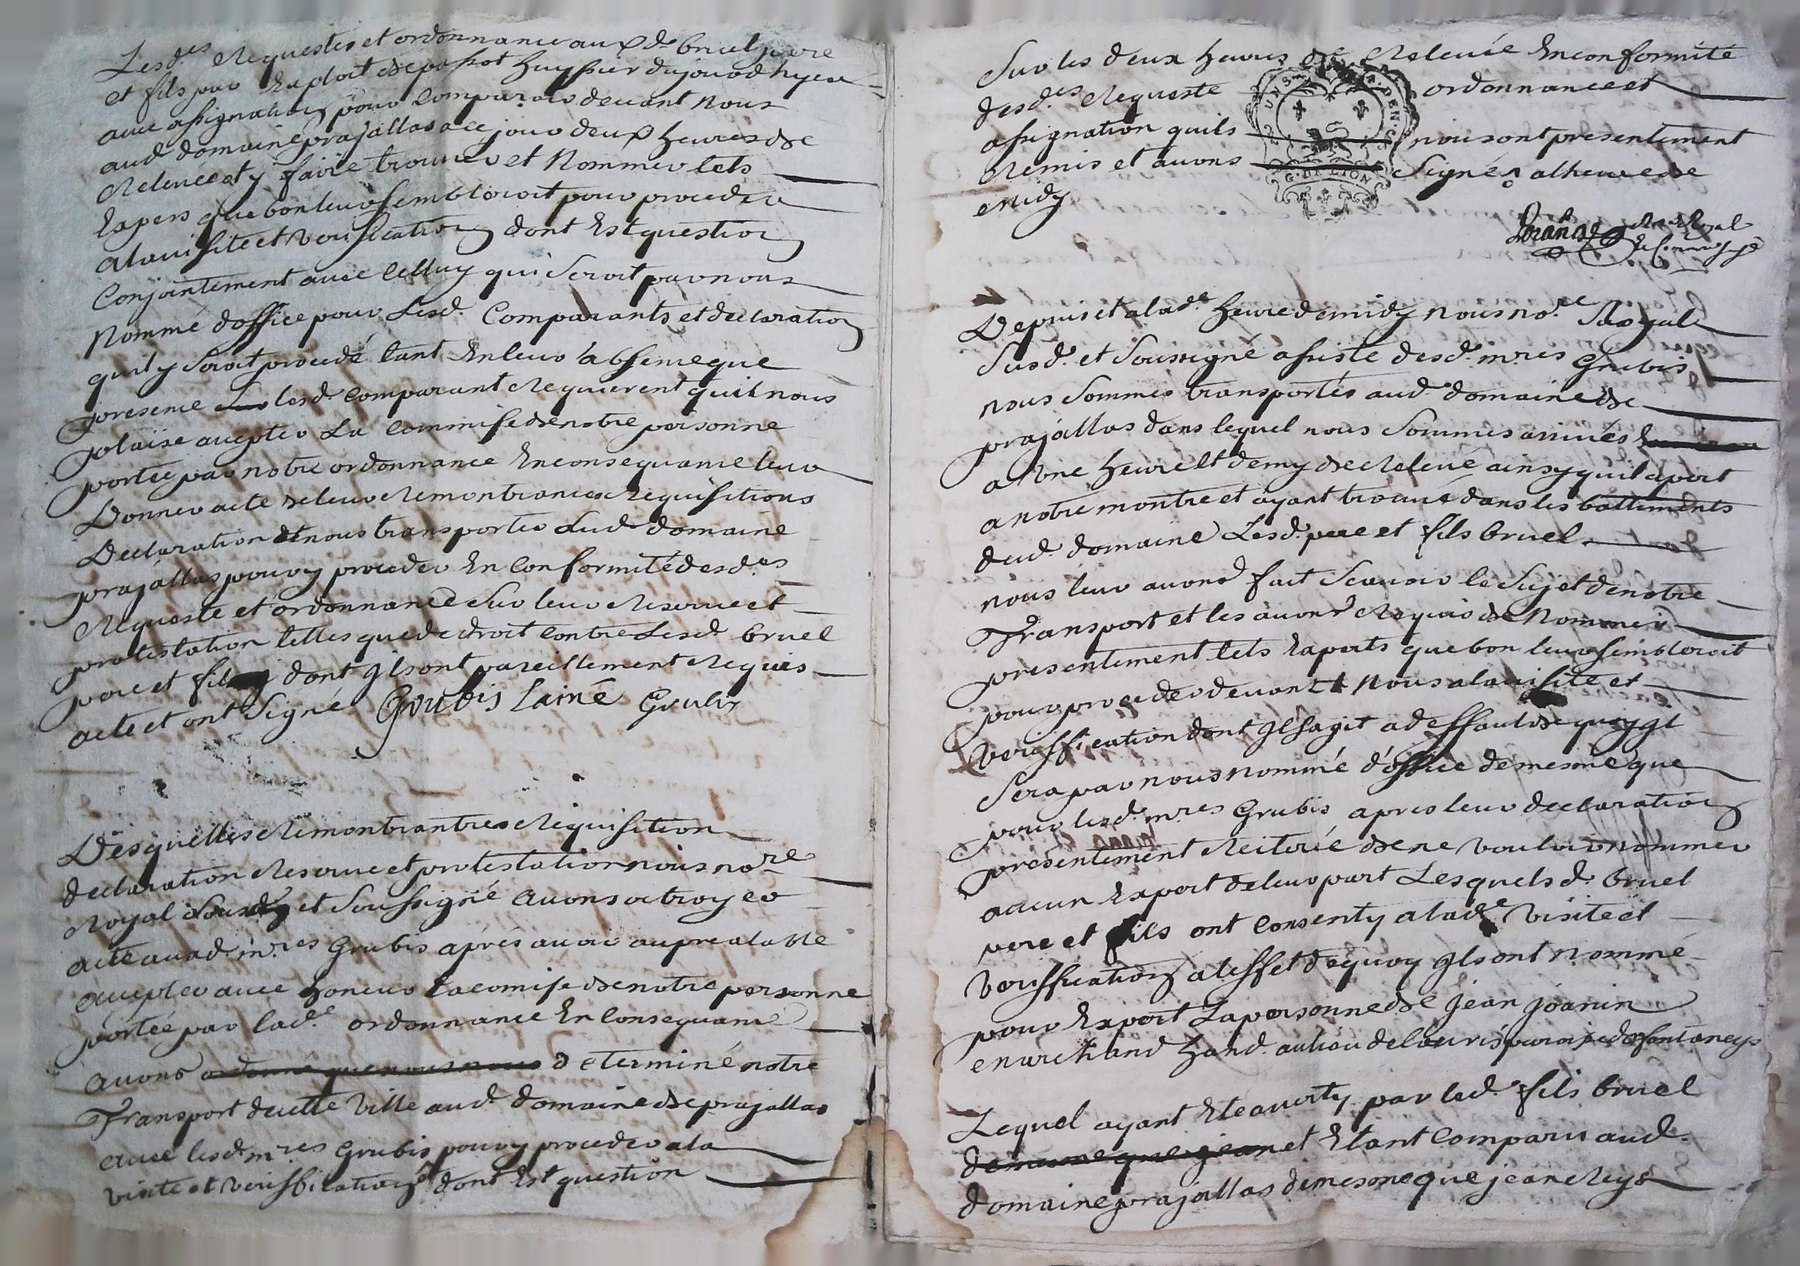 Lesd.es Requeste et ordonnance aux d. bruel pere
et fils par Exploit de passot huyssier du jourdhyer
avec assignation pour Comparoir devant Nous
aud domaine prajallas a ce jour deux heures de
Relevee et y faire trouver et Nommer tels
Expers que bon leur sembleroit pour proceder
a la visite et veriffication dont Est question
Conjointement avec Celluy qui seroit par nous
Nommé doffice pour Lesd. Comparants et declaration
quil y seroit procedé tant En leur absence que
presence lesd Comparant Requierent quil nous
plaise accepter La Commise de notre personne
portée par notre ordonnance En consequance leur
Donner acte de leur Remontrances Requisitions
Declaration et nous transporter aud domaine
prajallas pour y proceder En Conformité desd.es
Requeste et ordonnance sur leur Reserve et
protestation telles que de droit contre Lesd bruel
pere et fils dont Ils ont pareillement Requis
acte et ont signé Grubis Lainé Grubis
Desquelles Remontrantres Requisition
declaration Reserve et protestation nous no.re
Royal Susd et Soussigné avons octroyee
acte auxd m.res Grubis aprés avoir au prealable
accepter avec honeur La comise de notre personne
portée par lad.e ordonnance En Consequance
avons ordonne que nous nous determiné notre
Transport de cette ville aud domaine de prajallas
avec lesd m.res Grubis pour y proceder a la
visite et veriffication dont Est question
Sur les deux heures de Relevée En conformité
desd.es Requeste ordonnance et
assignation quils nous ont presentement
Remis et avons Signé a lheure de
midy
G. DE LION
Depuis et a lad.e heure de midy nous no.re Royal
Susd. et Soussigné assisté desd. m.res Grubis
nous Sommes transportés aud. domaine de
prajallas dans lequel nous Sommes arrivés
a Une heure Et demy de Relevé ainsy quil apert
a notre montre et ayant trouvé dans les battiments
dud. domaine Lesd. pere et fils bruel
nous leur avons fait Scavoir le Sujet de notre
Transport et les avons Requis de Nommer
presentement tels Experts que bon leur sembleroit
pour proceder devant Nous a la visite et
veriffication dont Il sagit a deffaut de quoy Il
Sera par nous nommé d'office de mesme que
pour lesd. m.res Grubis apres leur declaration
presentement Reiteré de ne vouloir nommer
aucun Expert de leur part Lesquels d. bruel
pere et fils ont consenty a lad.e visite et
veriffication a leffet de quoy Ils ont Nommé
pour Expert La personne de jean joanin
marchand hand. au lieu de paroisse de fontaneys
Lequel ayant Ete averty par led. fils bruel
et Etant Comparu aud.
domaine prajallas de mesme que jean Reys